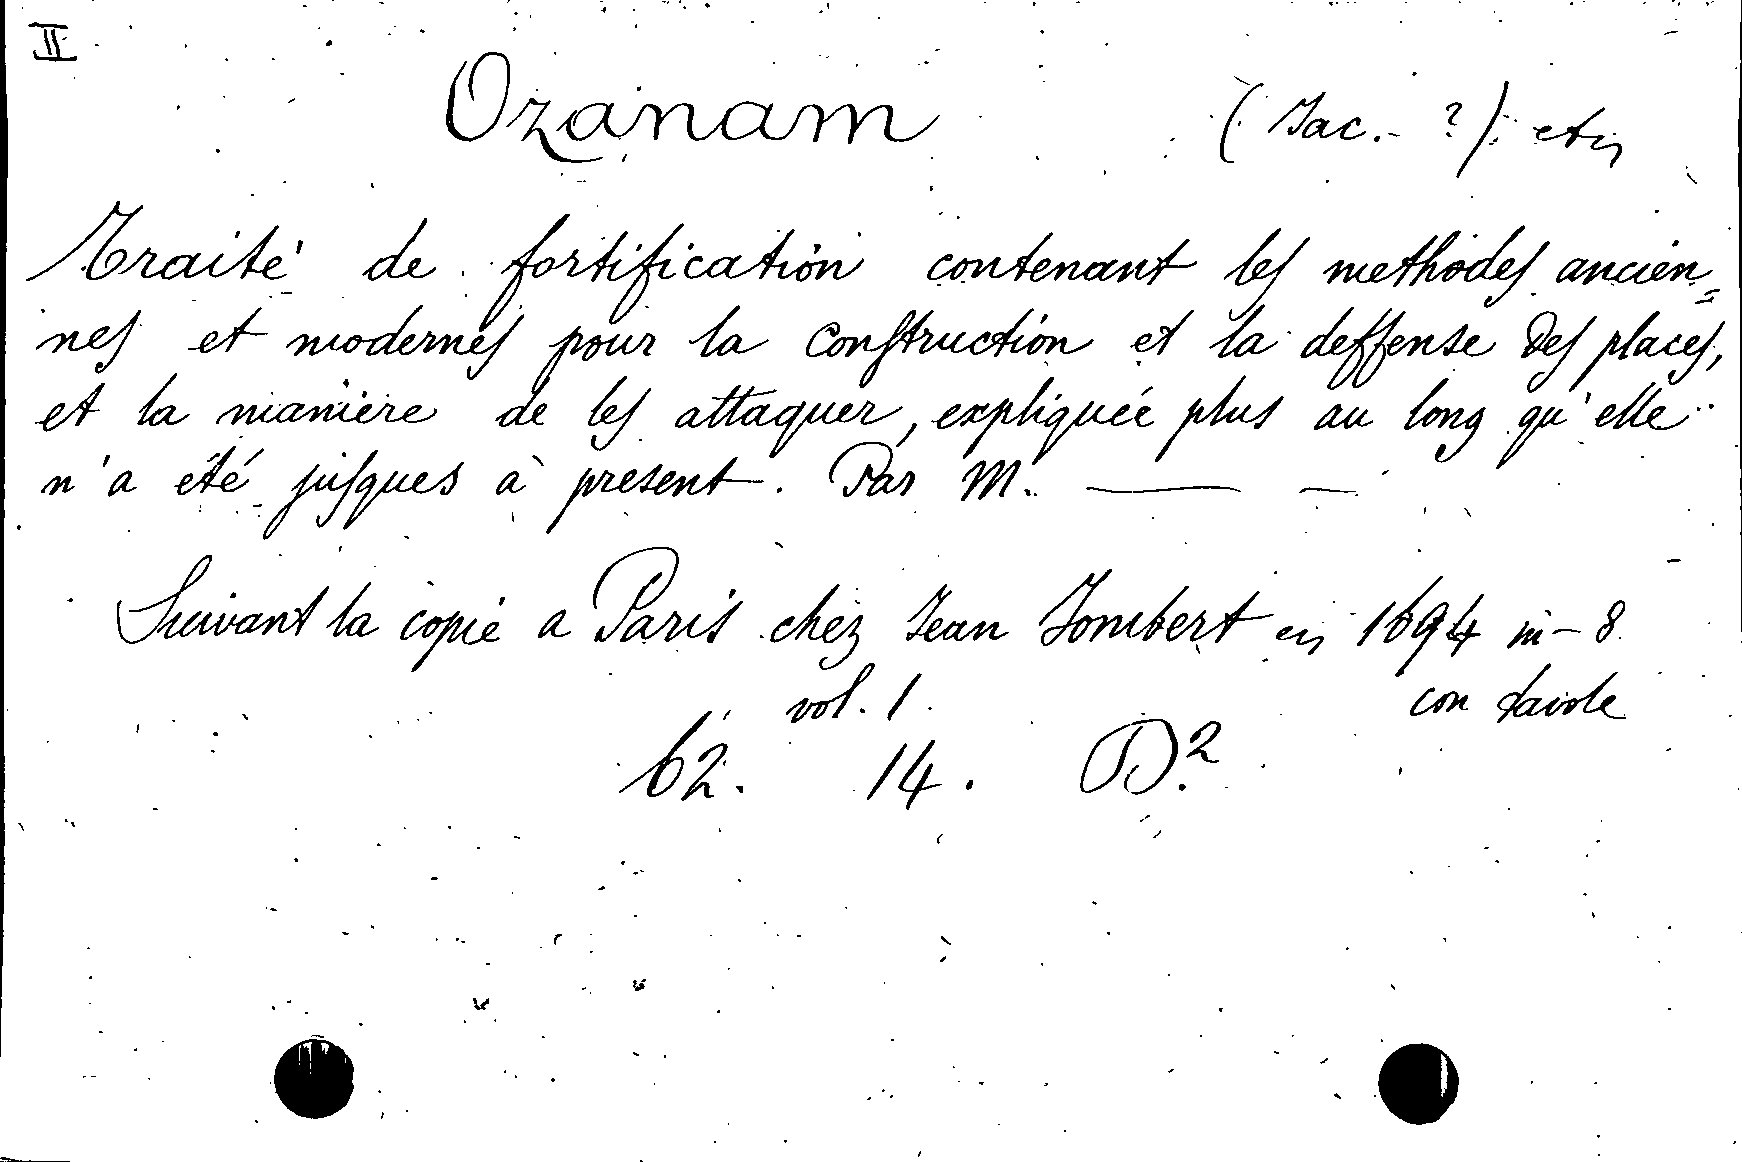 II
Ozanam (Jac. - ?)
Traité de fortification contenant les methodes ancien=
nes et modernes pour la construction et la deffense des places,
et la maniere de les attaquer, expliquée plus au long qu'elle
n'a été jusques à present. Par M. —— —
Suivant la copie a Paris chez Jean Jombert en 1694 in-8
vol. 1. con tavole
62. 14. D.²